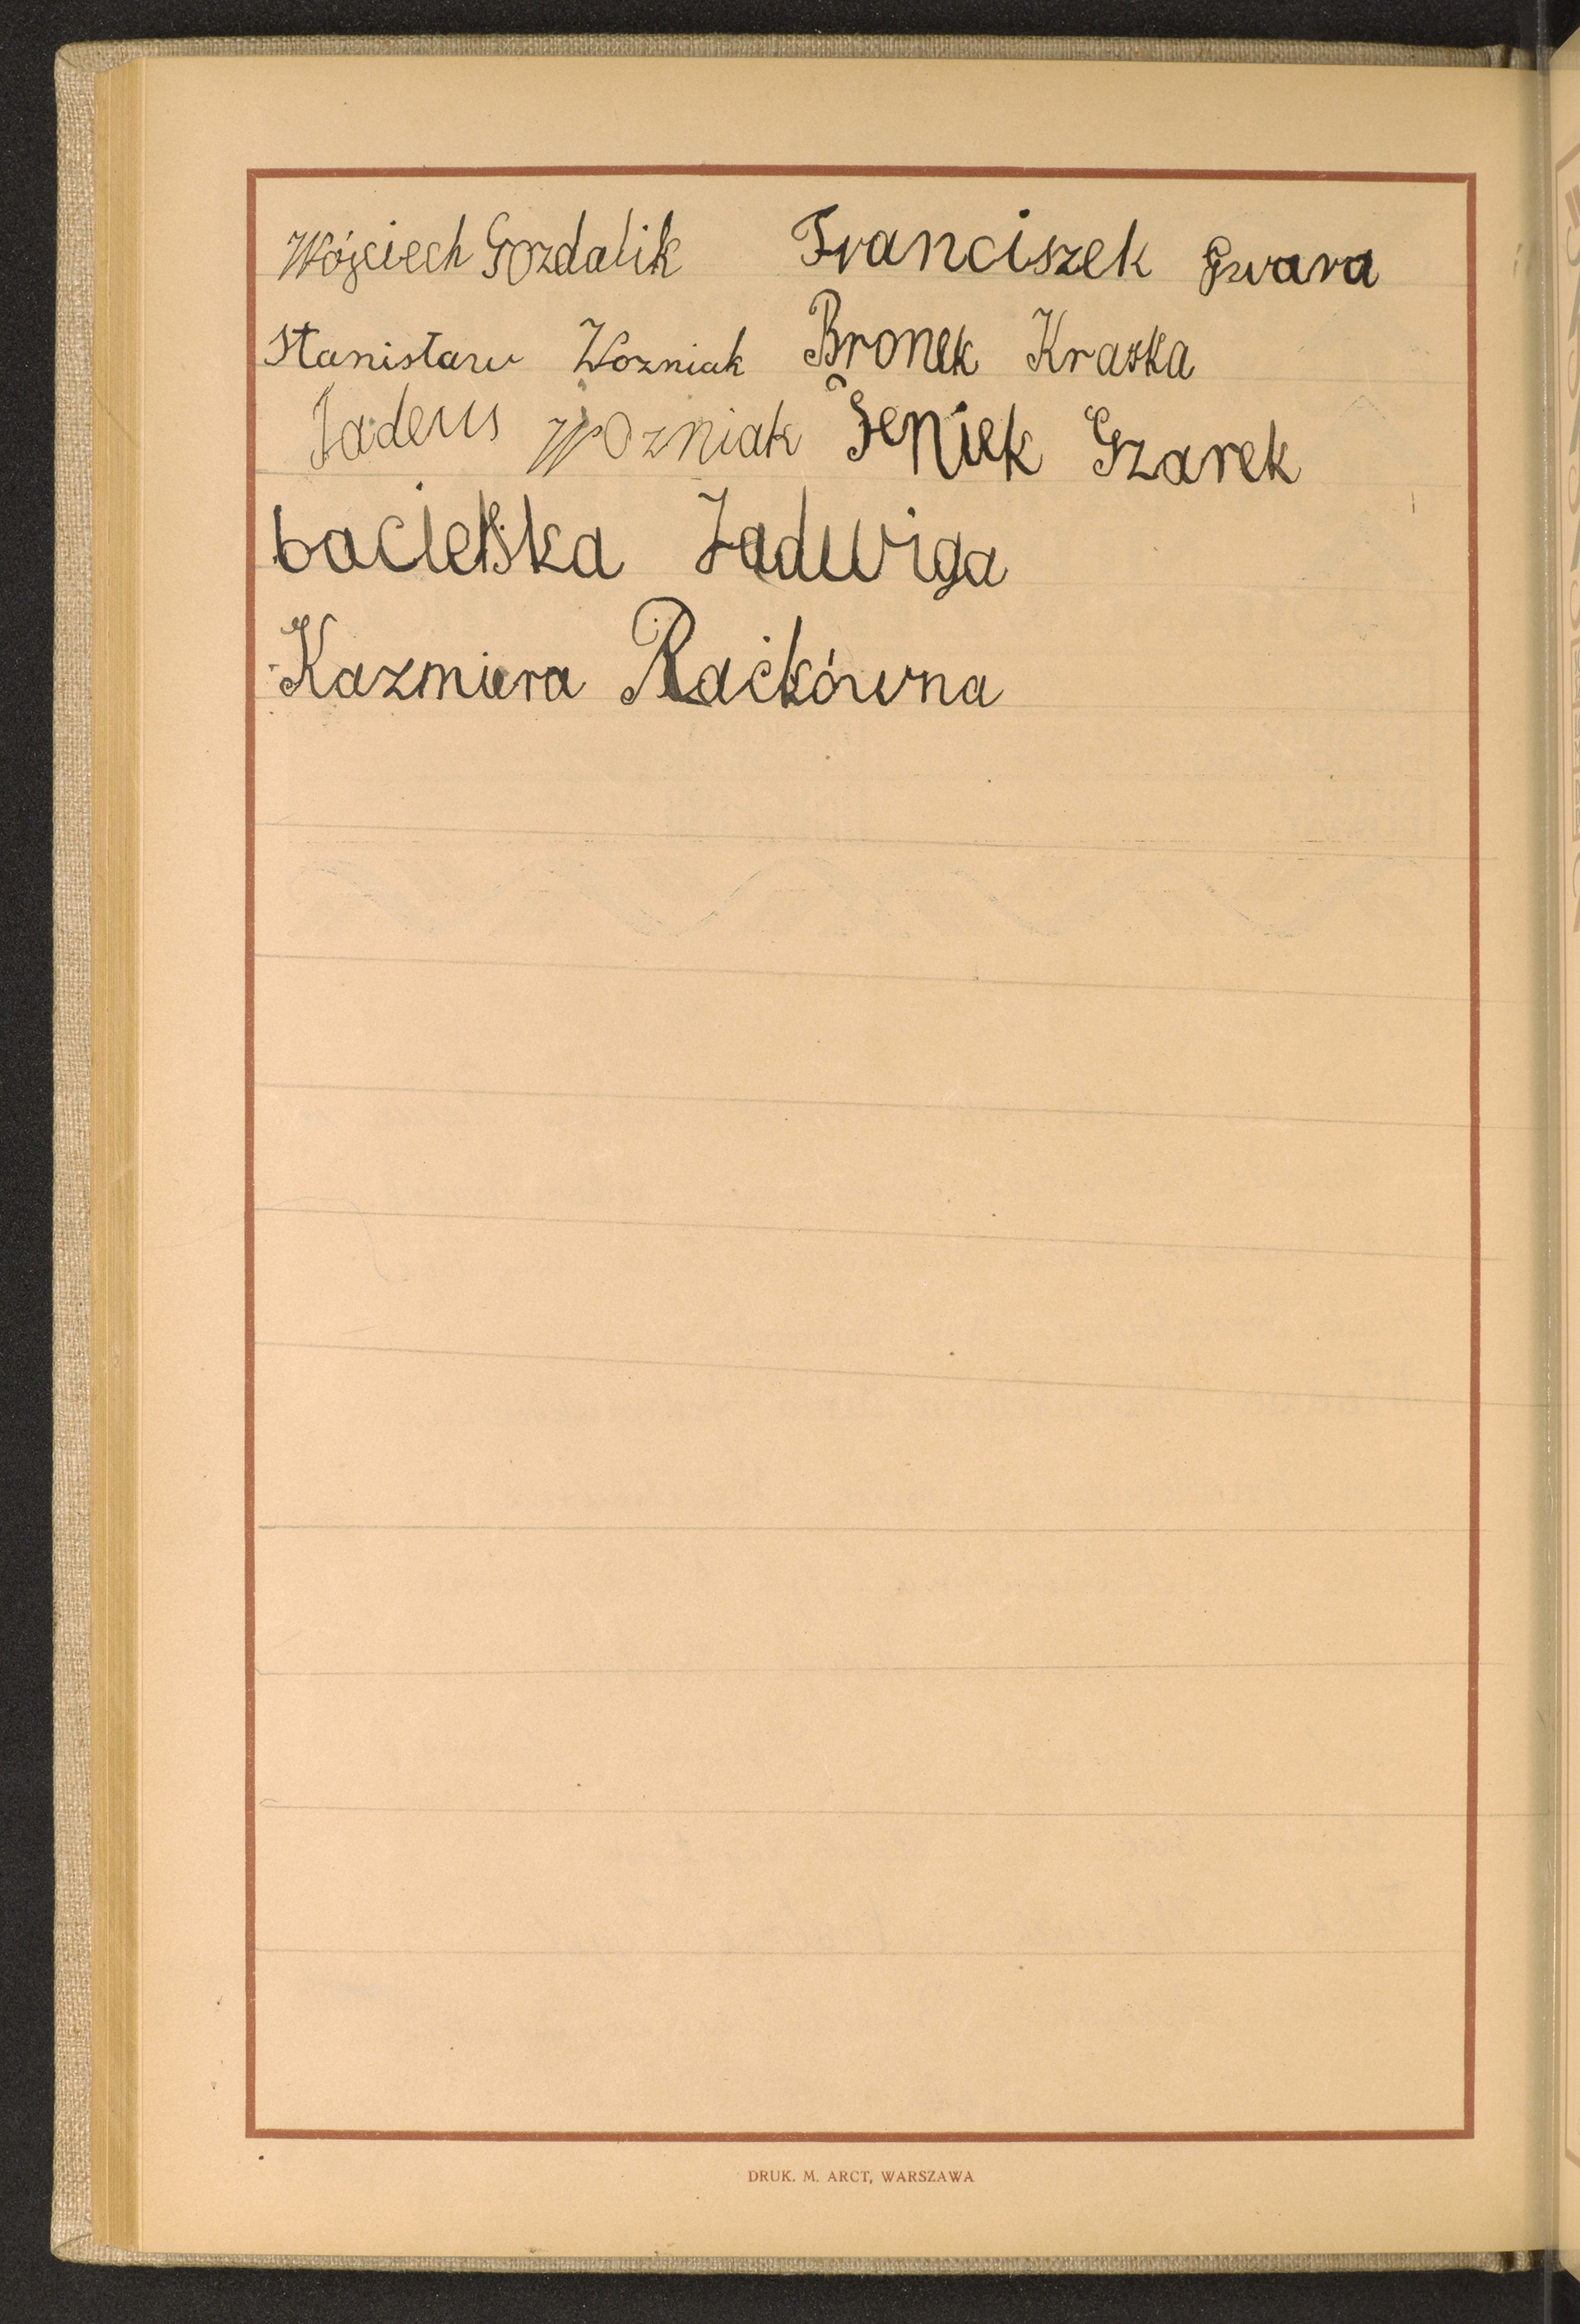 Wójciech Gozdalik Franciszek Gwara
Stanisław Wozniak Bronek Kraska
Tadeus Wozniak Geniek Gzarek
bacielska Jadwiga
Kazmiera Raćkówna
DRUK. M. ARCT, WARSZAWA